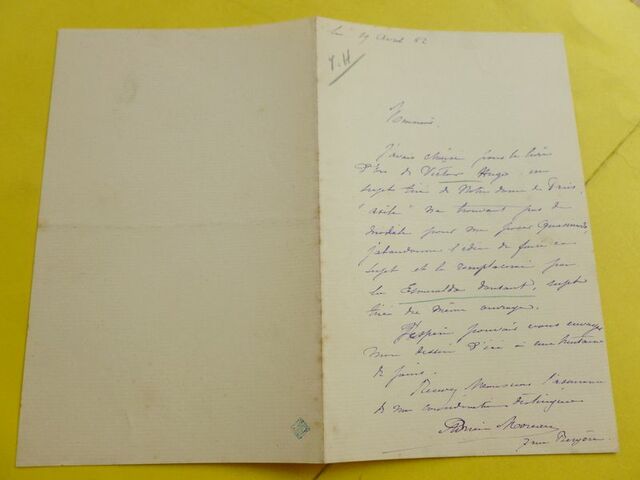 le 19 Avril 82
V. H
Monsieur
J'avais choisi pour le livre
d'or de Victor Hugo un
sujet tiré de Notre dame de Paris
"asile" ne trouvant pas de
modèle pour me poser Quasimodo
j'abandonne l'idée de faire ce
sujet et le remplacerai par
la Esmeralda dansant, sujet
tiré du même ouvrage.
J'espère pouvoir vous envoyer
mon dessin d'ici à une huitaine
de jours.
Recevez Monsieur l'assurance
de ma considération distinguée
Adrien Moreau